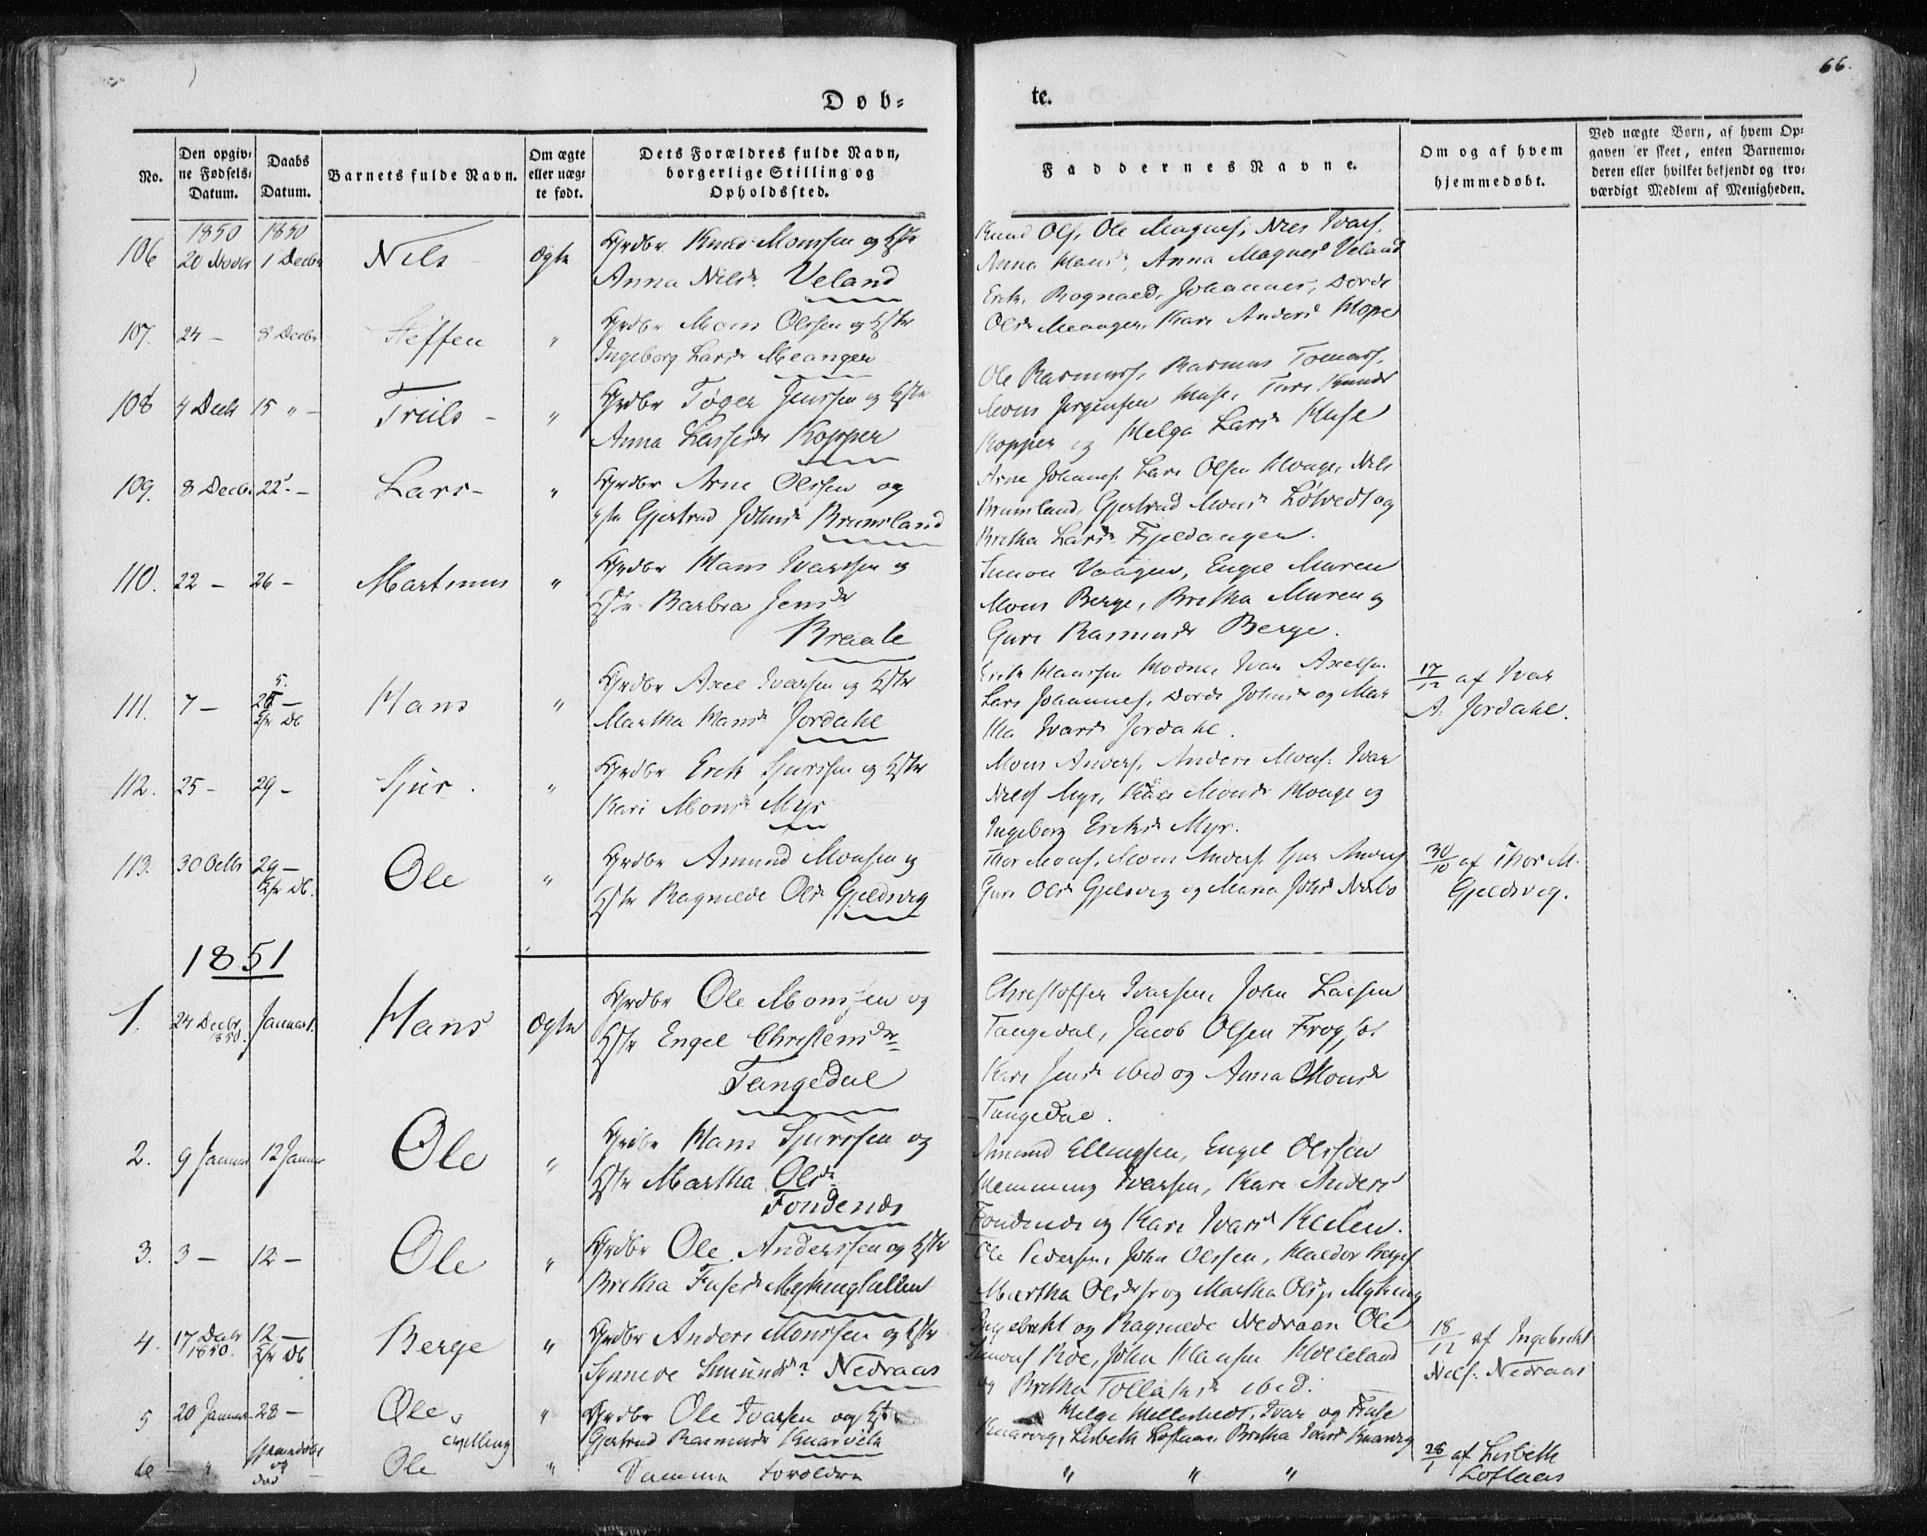 66.
Døb-
te.
No.
Den opgiv-
ne Fødsels-
Datum.
Daabs
Datum.
Barnets fulde Navn.
Om ægte
eller uæg-
te født.
Dets Forældres fulde Navn,
borgerlige Stilling og
Opholdssted.
Faddernes Navne.
Om og af hvem
hjemmedøbt.
Ved uægte Børn, af hvem Op-
gaven er skeet, enten Barnemo-
deren eller hvilket bekjendt og tro-
værdigt Medlem af Menigheden.
1850 1850
106 20 Novbr 1 Decbr Nils ægte Grdbr Knud Monssen og Hstr
Anna Nilsd. Veland
Knud Ols. Ole Magnes, Nils Ivars.
Anna Hansd., Anna Magnesd Veland
107. 24 - 8 Decbr Steffen " Grdbr Mons Olssen og Hstr
Ingeborg Larsd. Meanger
Erik Rognald, Johannes, Dorde
Olsd. Meanger, Kari Andersd Hope
108 4 Decbr 15 " - Truls - " Grdbr Tøger Jenssen og Hstr
Anna Lassesd Kopper
Ole Rasmuss, Rasmus Tomass.
Mons Jørgensen Huse, Turi Knudsd
Kopper og Helga Larsd Huse
109. 8 Decbr 22 - Lars - " Grdbr Arne Olssen og
Hstr Gjertrud Johnsd Brunsland
Arne Johanness. Lars Olsen Houge, Nils
Brunsland, Gjertrud Monsd Løtvedt og
Britha Larsd. Fjeldanger.
110. 22 - 26 - Martinus " Grdbr Hans Ivarssen og
Hstr Barbra Jensd
Braate
Simon Vaagen, Engel Muren
Mons Berge, Britha Muren og
Guri Rasmusd Berge.
111. 7 - 26 - Hans " Grdbr Axel Ivarsen og Hstr
Kfr Db Martha Hansd Jordahl
Erik Hanssen Hodne, Ivar Axelsen
Lars Johannes, Dorde Johnsd og Mar
tha Ivarsd Jordahl.
17/12 af Ivar
A. Jordahl.
112. 25 - 29 - Sjur. " Grdbr Erik Sjurssen og Hstr
Kari Monsd Myr
Mons Anders. Anders Mons. Ivar
Nils Myr, Kari Monsd Houge og
Ingeborg Eriksd Myr.
113. 30 Octbr 29 - Ole " Grdbr Amund Monsen og
Kfr Db. Hstr Ragnilde Olsd Gjeldsvig
Thor Mons. Mons Anders. Sjur Anders
Guri Olsd Gjelsvig og Maria Johnsd Nesbo
30/10 af Thor M.
Gjeldsvig.
1851
1. 24 Decbr Januar 1. Hans ægte Grdbr Ole Monssen og
1850. Hstr Engel Christensdr
Tangedal
Christoffer Ivarsen, John Larsen
Tangedal, Jacob Olsen Frog
Kari Jensd ibid og Anna Monsd
Tangedal.
2. 9 Januar 12 Januar Ole " Grdbr Hans Sjurssen og
Hstr Martha Olsd.
Fondenes
Amund Ellingsen, Engel Olssen
Hemming Ivarsen, Kari Anders
Fondenes og Kari Ivarsd Keilen.
3. 3 - 12 - Ole " Grdbr Ole Anderssen og Hstr
Britha Fusesd Mykingsælten
Ole Pedersen, John Olssen, Haldor Berges
Martha Olsd og Martha Olsd Myking
4. 17 Decbr 12 - Berge " Grdbr Anders Monssen og Hstr
1850. Kfr Db Synneve Amundsdr Nedraas
Ingebrikt og Ragnilde Nedraas Ole
Simons Roe, John Hansen Helleland
og Britha Tollaksd ibid.
18/12 af Ingebrikt
Nels. Nedraas
5 20 Januar 28 - Ole, " Grdbr Ole Ivarsen og Hstr
tvilling Gjertrud Rasmusd Knarvik
Helge Hellestvedt, Ivar og Fuse
Knarvig, Lisbeth Loftaas, Britha Ivarsd Knarvig
6 - " Hjemmedøbt og død Ole " Samme Forældre
" " "
28/1 af Lisbeth
Loftaas